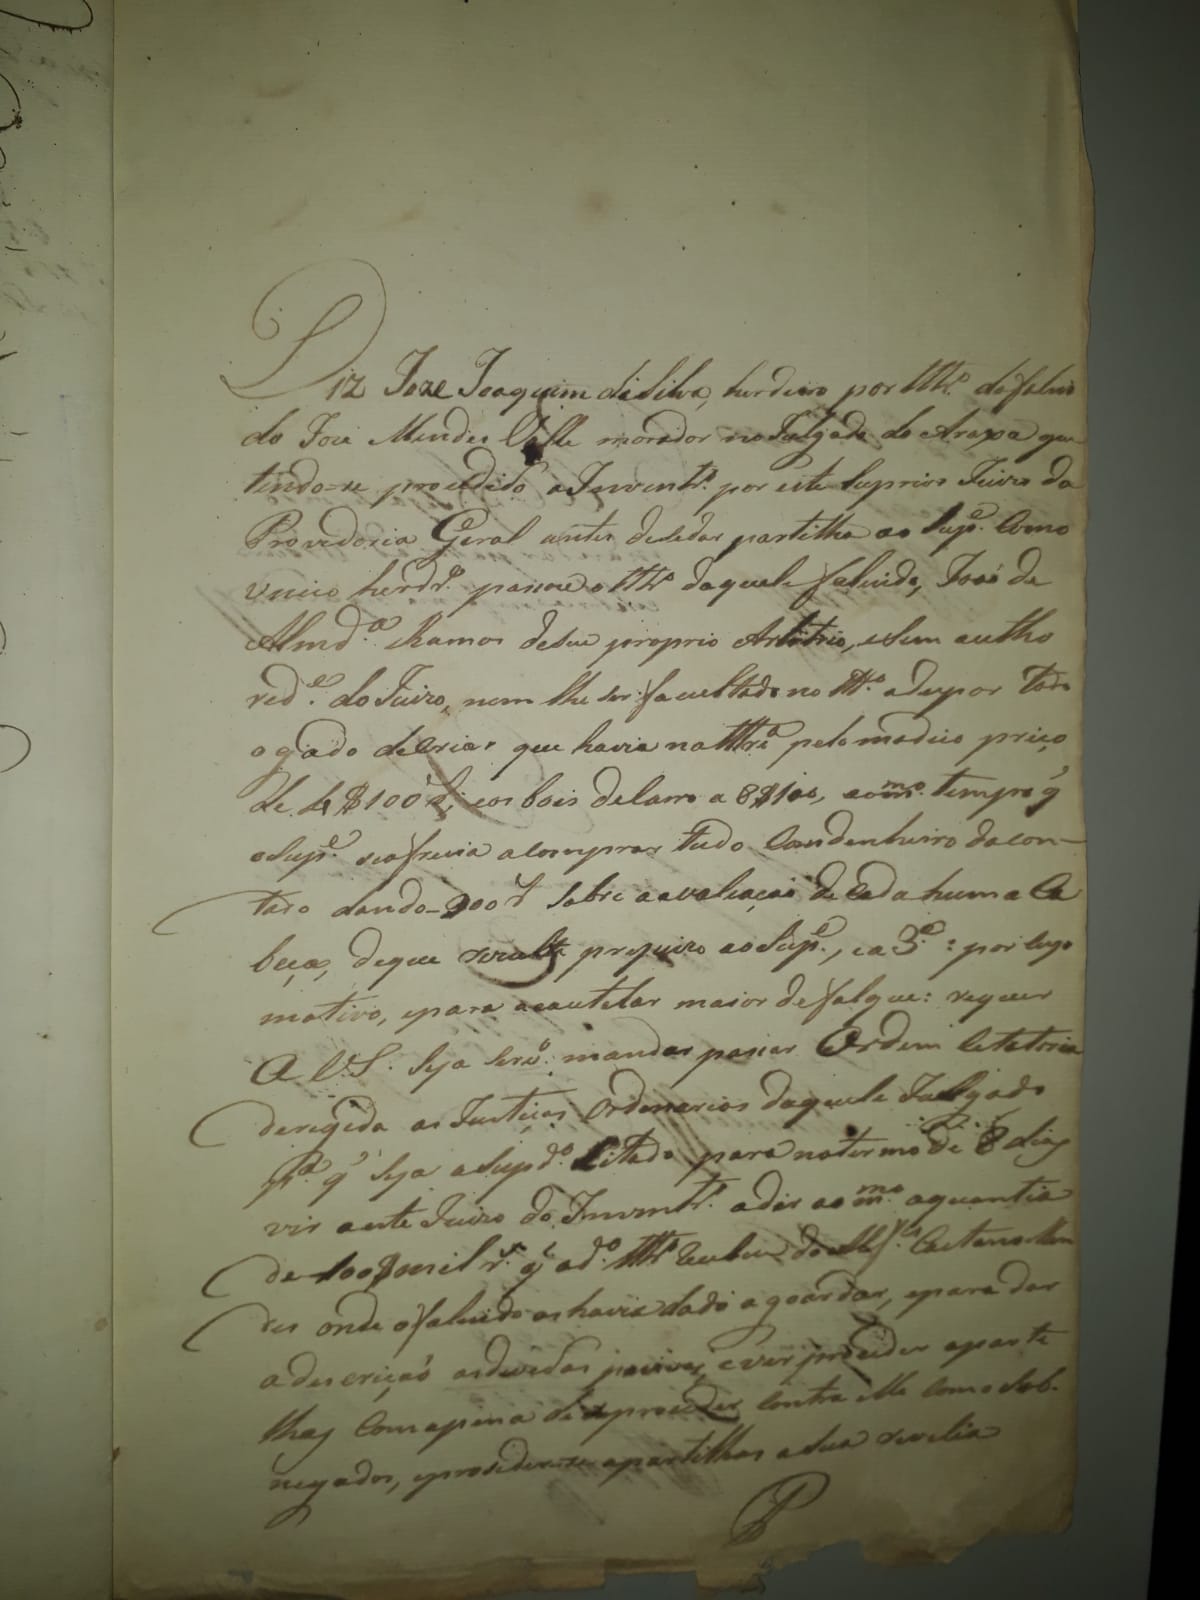 Diz Joze Joaquim da Silva, herdeiro por ttr.º do faleci
do Joze Mendes morador no Julgado do Araxa que
tendo-se procedido a Invent.º por este Suprior Juizo da
Provedoria Geral antes de se dar partilha ao Sup.e Como
unico herdr.º passou o ttr.º daquele falicido, Joaõ de
Almd.a Ramos de seu proprio Arbitrio, e sem autho
rid.e do Juizo, nem lhe ser facultado no tt.º a dispor todo
o gado de Criar que havia na pelo modico preço
de 4$100 r.s, e os bois de Carro a 8$100, ao m.mo tempo q'
o Sup.e se oferecia a Comprar tudo Com denheiro de con-
tado dando 300 r.s sobre a avaliaçaõ de Cada huma Ca
beça, de que rezulta prejuizo ao Sup.e, e a 3.a : por cujo
motivo, e para acautelar maior desfalque: requer
A V.S. seja serv.º mandar passar Ordem Citatoria
deregida as Justiças Ordenarias daquele Julgado
p.a q' seja o Supd.º Citado para no termo de 8 dias
vir a este Juizo do Invent.º a dar ao m.mo a quantia
de 100$ mil r.s q' o d.º ttr.º Caetano Men
des onde o falicido os havia dado a goardar, e para dar
a descriçaõ as dividas passivas, e ver proceder a parti
lhas Com a pena de se proceder Contra elle Como sob-
negados, e proseder-se a partilhas a sua revelia